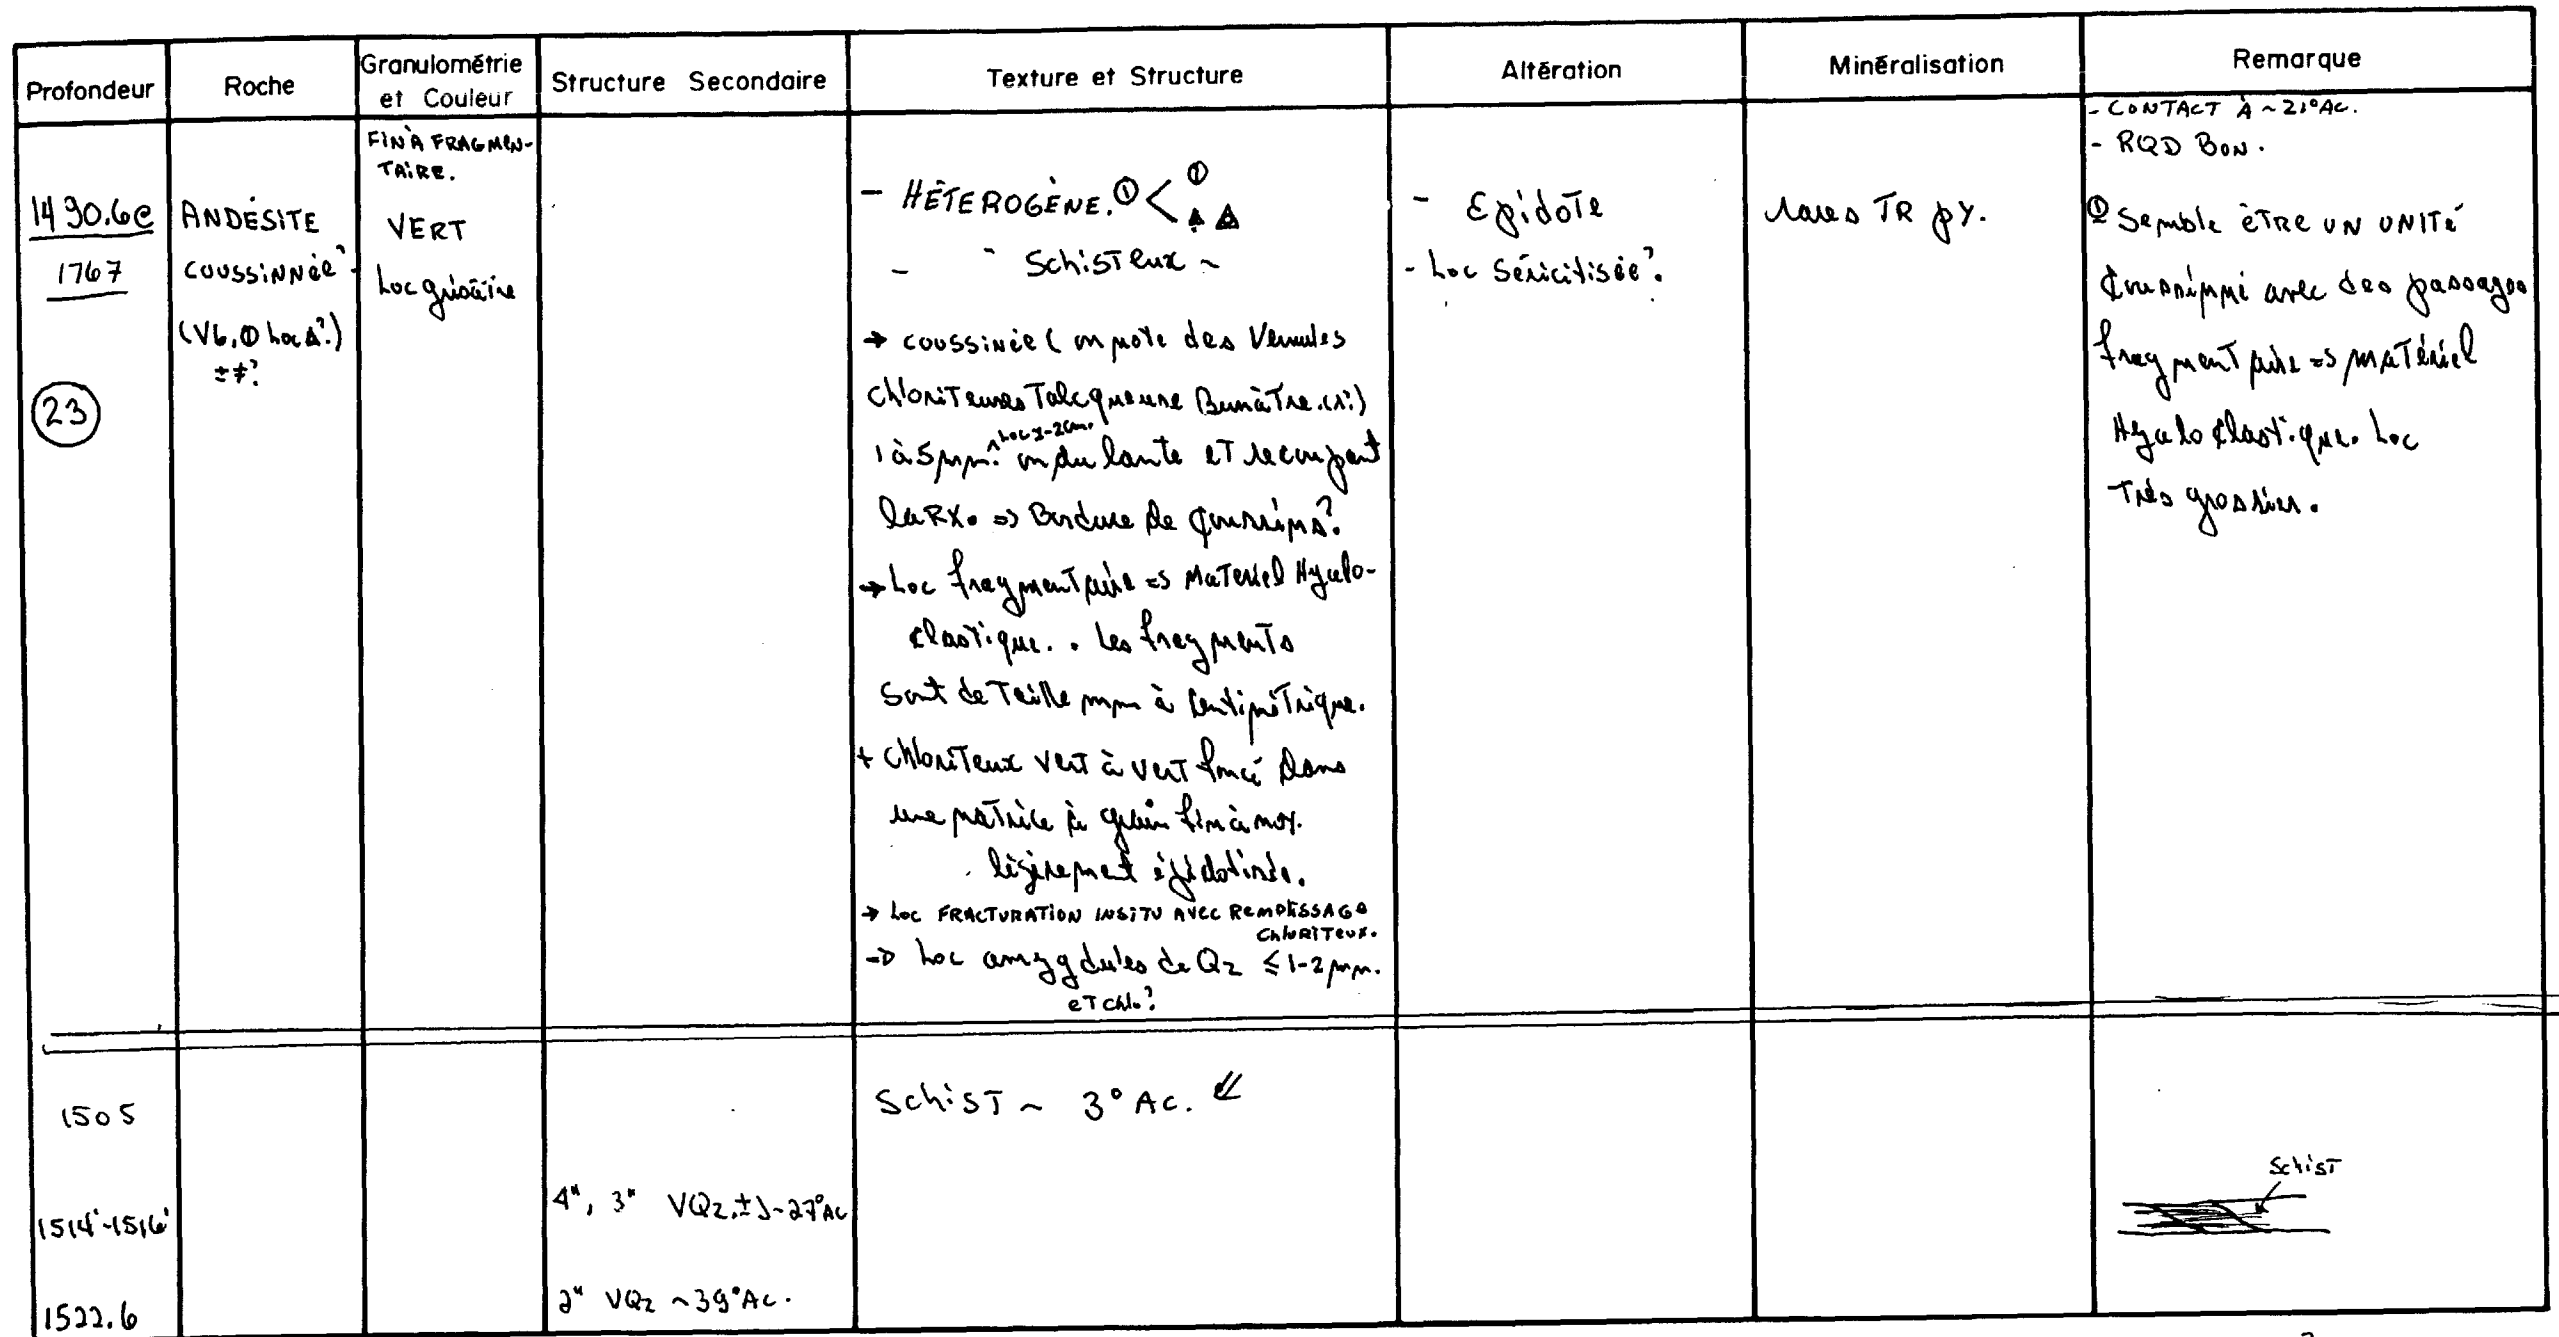 Profondeur
Roche
Granulométrie
et Couleur
Structure Secondaire
Texture et Structure
Altération
Minéralisation
Remarque
1490.6@
1767
23
ANDÉSITE
COUSSINNÉE?
(V6, ① Loc Δ?)
±≠?
FIN À FRAGMEN-
TAIRE.
VERT
Loc grisâtre
- HÉTEROGÈNE. ① < ①
- Schisteux ~
→ COUSSINÉE ( on note des Veinules
chloriteuses Talcqueuse Bunâtre.
Loc 1-2cm.
1 à 5mm. ondulante et recoupant
la RX. => Bordure de coussins?
→ Loc fragmentaire => Materiel Hyalo-
clastique. . Les fragments
sont de Taille mm à centimétrique.
+ chloriteux vert à vert foncé dans
une matrice à grain fin à moy.
légèrement épidotisée.
→ Loc FRACTURATION INSITU AVEC REMPLISSAGE
ChLORITEUX.
→ Loc amygdules de Qz ≤ 1-2 mm.
eT chlo?
- Epidote
- Loc Séricitisée?
rares TR py.
- CONTACT À ~21°AC.
- RQD BON.
① Semble être un UNITÉ
Coussinné avec des passages
fragmentaire => matériel
Hyaloclastique. Loc
Très grossier.
1505
SchisT ~ 3° AC.
1514'-1516'
4", 3" VQz, ± ~27°AC
SchisT
1522.6
2" VQz ~39°AC.